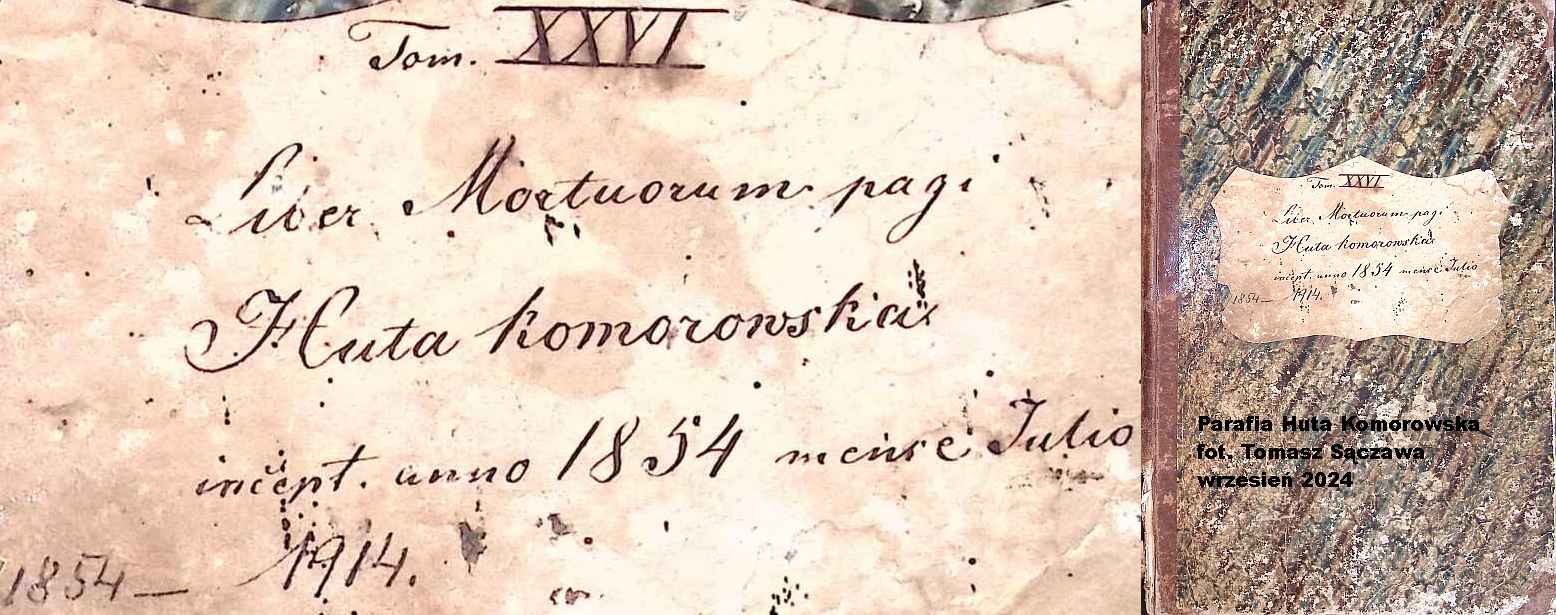 Tom. XXVI
Liber Mortuorum pagi
Huta komorowska
incept. anno 1854 mense Julio
1854 — 1914.
Tom. XXVI
Liber Mortuorum pagi
Huta komorowska
incept. anno 1854 mense Julio
1854 — 1914.
Parafia Huta Komorowska
fot. Tomasz Sączawa
wrzesien 2024